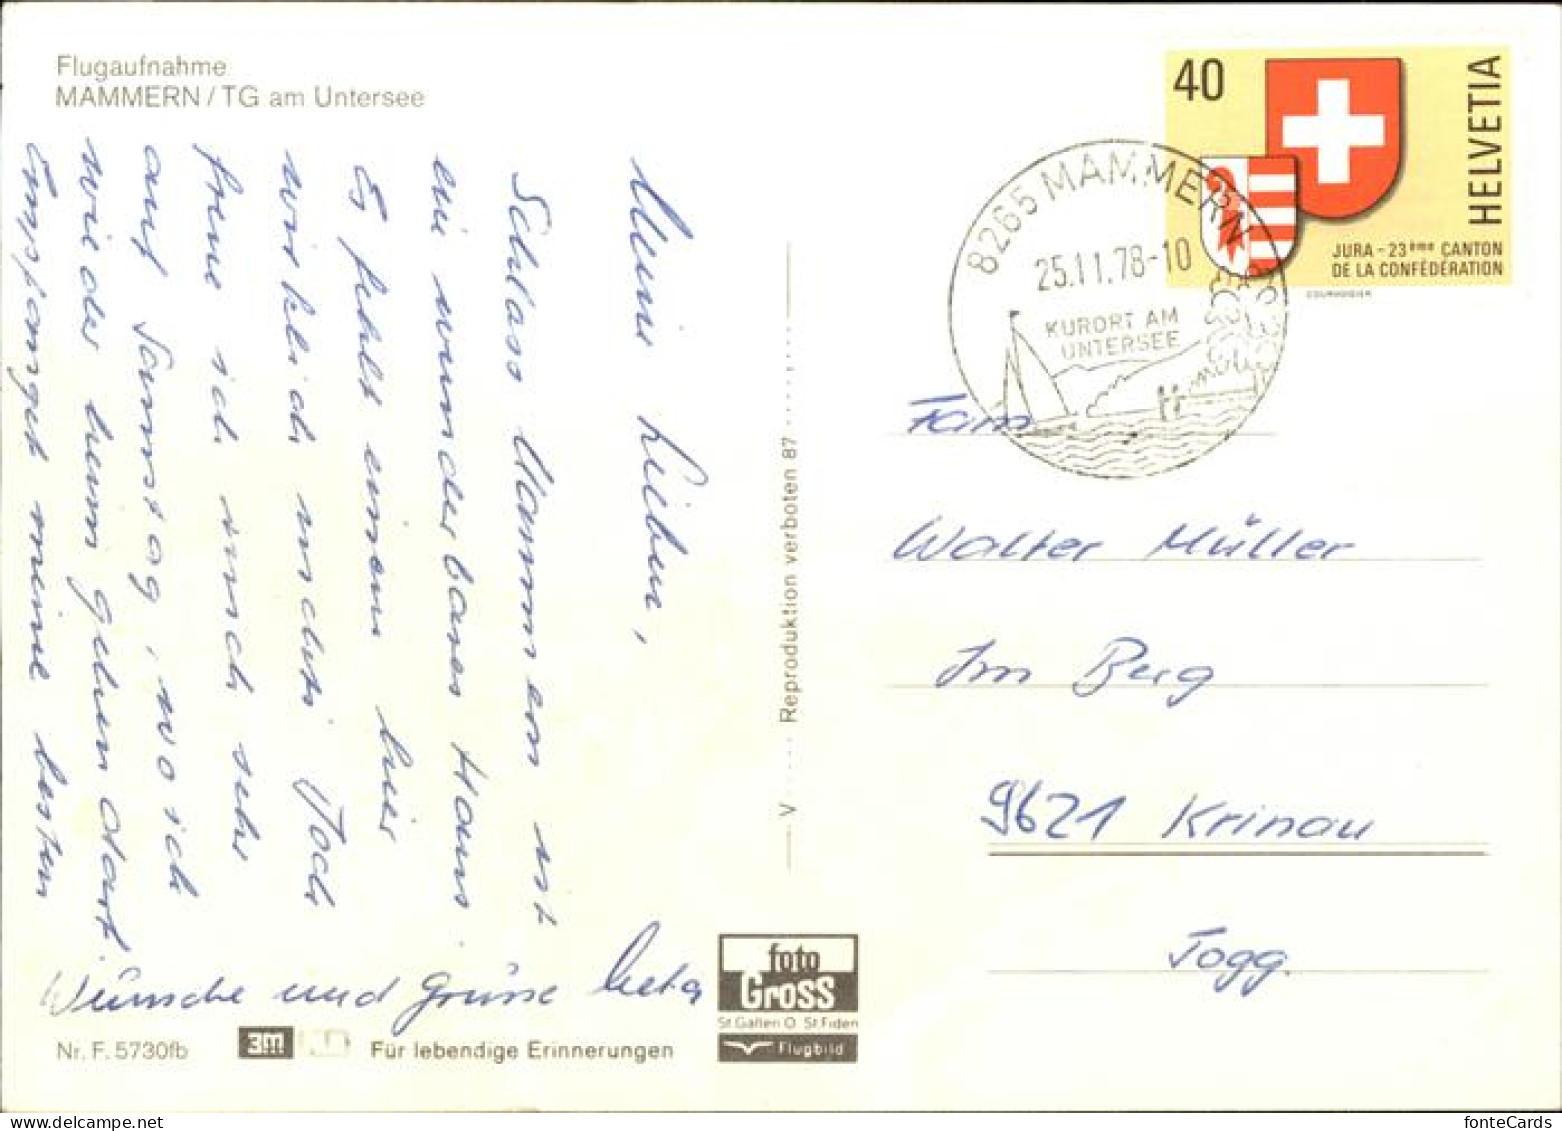 Flugaufnahme
MAMMERN / TG am Untersee
Meine Lieben,
Schloss Mammern ist
ein wunderbares Haus.
Es fehlt einem hier
wirklich nichts. Doch
freue ich mich sehr
auf Samstag, wo ich
wieder heim gehen darf.
Empfangt meine besten
Wünsche und Grüsse
Nr. F. 5730fb
3M
Für lebendige Erinnerungen
V
Reproduktion verboten 87
foto
Gross
St. Gallen O St. Fiden
Flugbild
40
HELVETIA
JURA - 23ème CANTON
DE LA CONFÉDÉRATION
COURVOISIER
8265 MAMMERN
25.11.78-10
KURORT AM
UNTERSEE
Fam
Walter Müller
Im Berg
9621 Krinau
Togg.
fonteCards